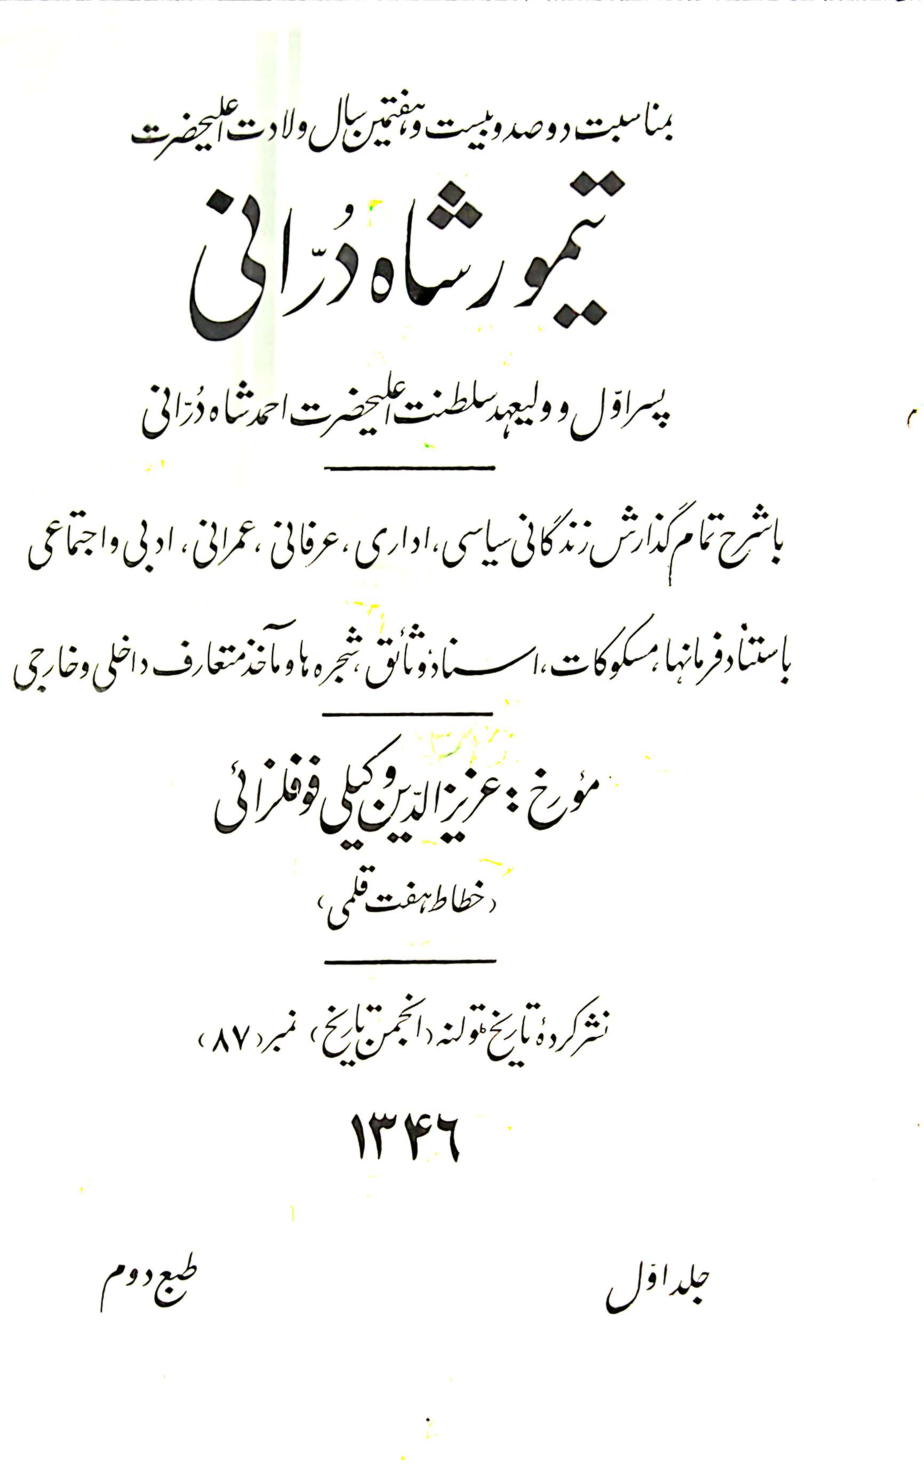 بمناسبت دوصد و بیست و هفتمین سال ولادت اعلیحضرت
تیمور شاه دُرّانی
پسر اوّل و ولیعهد سلطنت اعلیحضرت احمد شاه دُرّانی
با شرح تمام گذارش زندگانی سیاسی، اداری، عرفانی، عمرانی، ادبی و اجتماعی
باستناد فرمانها، مسکوکات، اسناد وثائق، شجره ها و مآخذ متعارف داخلی و خارجی
مؤرخ: عزیز الدّین وکیلی فوفلزائی
(خطاط هفت قلمی)
نشر کردهٔ تاریخ تولنه (انجمن تاریخ) نمبر (۸۷)
۱۳۴۶
جلد اوّل
طبع دوم